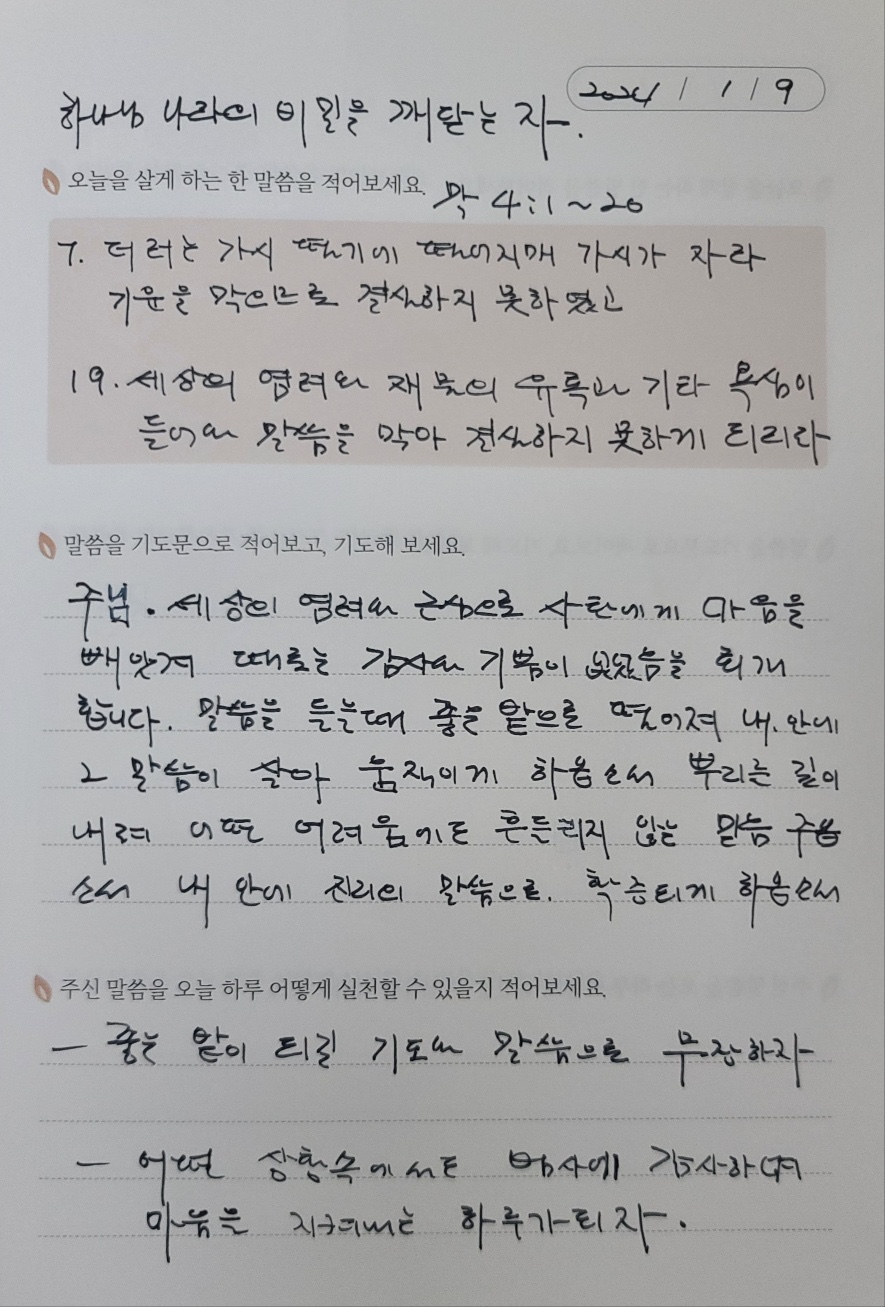 2024 / 1 / 9
하나님 나라의 비밀을 깨닫는 자.
오늘을 살게 하는 한 말씀을 적어보세요.
막 4:1~20
7. 더러는 가시 떨기에 떨어지매 가시가 자라
기운을 막으므로 결실하지 못하였고
19. 세상의 염려와 재물의 유혹과 기타 욕심이
들어와 말씀을 막아 결실하지 못하게 되리라
말씀을 기도문으로 적어보고, 기도해 보세요.
주님. 세상의 염려와 근심으로 사탄에게 마음을
빼앗겨 때로는 감사와 기쁨이 없었음을 회개
합니다. 말씀을 듣는때 좋은 밭으로 떨어져 내 안에
그 말씀이 살아 움직이게 하옵소서 뿌리를 깊이
내려 어떤 어려움에도 흔들리지 않는 말씀 주옵
소서 내 안에 진리의 말씀으로. 확증되게 하옵소서
주신 말씀을 오늘 하루 어떻게 실천할 수 있을지 적어보세요.
- 좋은 밭이 되길 기도와 말씀으로 무장하자
- 어떤 상황속에서도 범사에 감사하며
마음을 지켜내는 하루가되자.